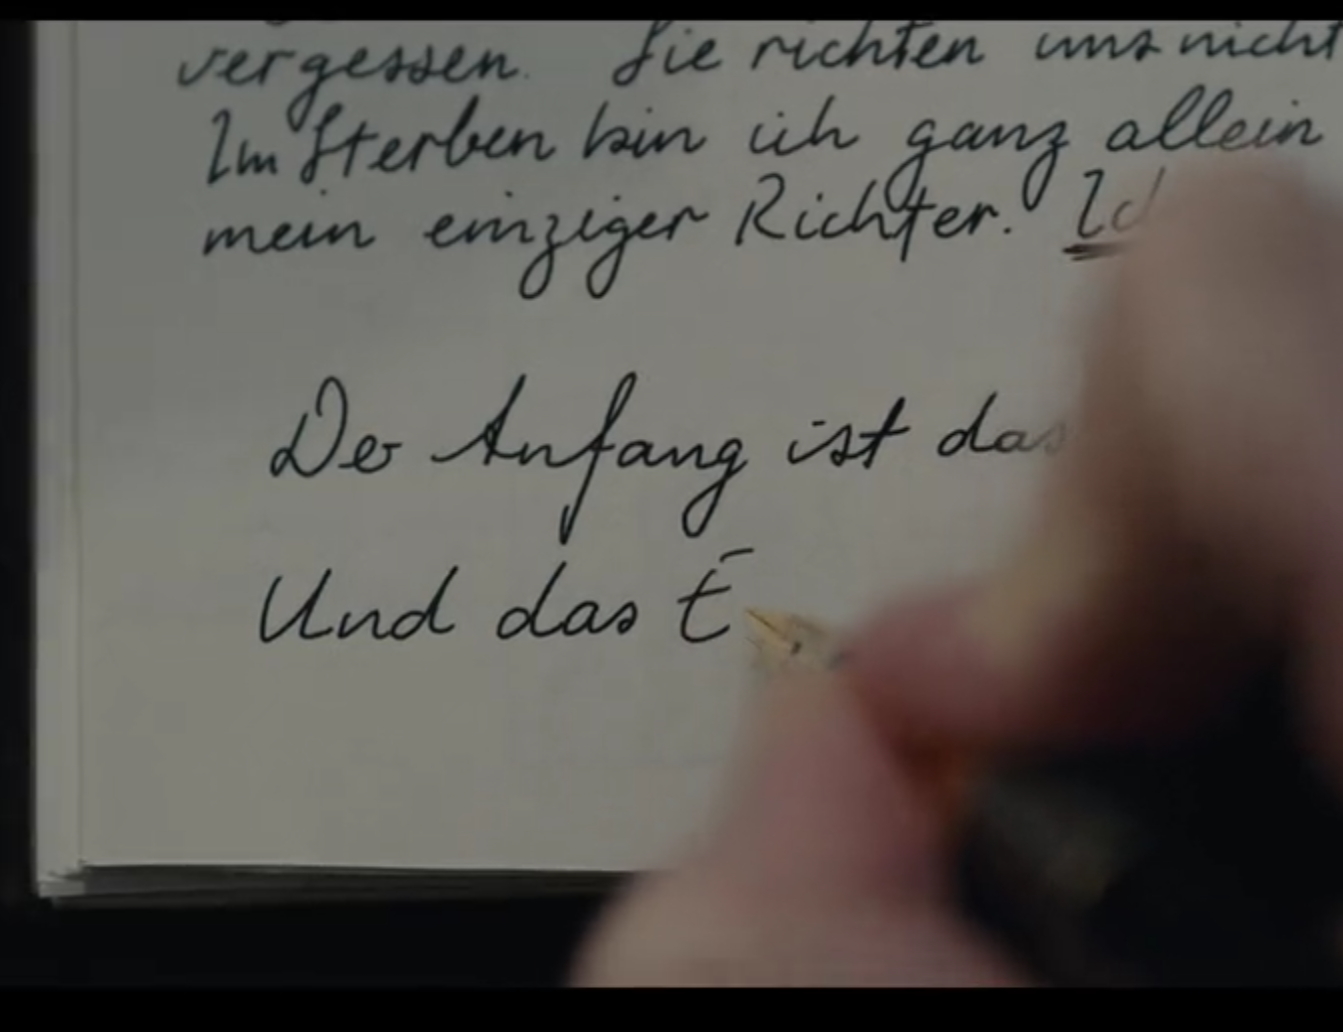 vergessen. Sie richten uns nicht
Im Sterben bin ich ganz allein
mein einziger Richter.
Der Anfang ist das
Und das E